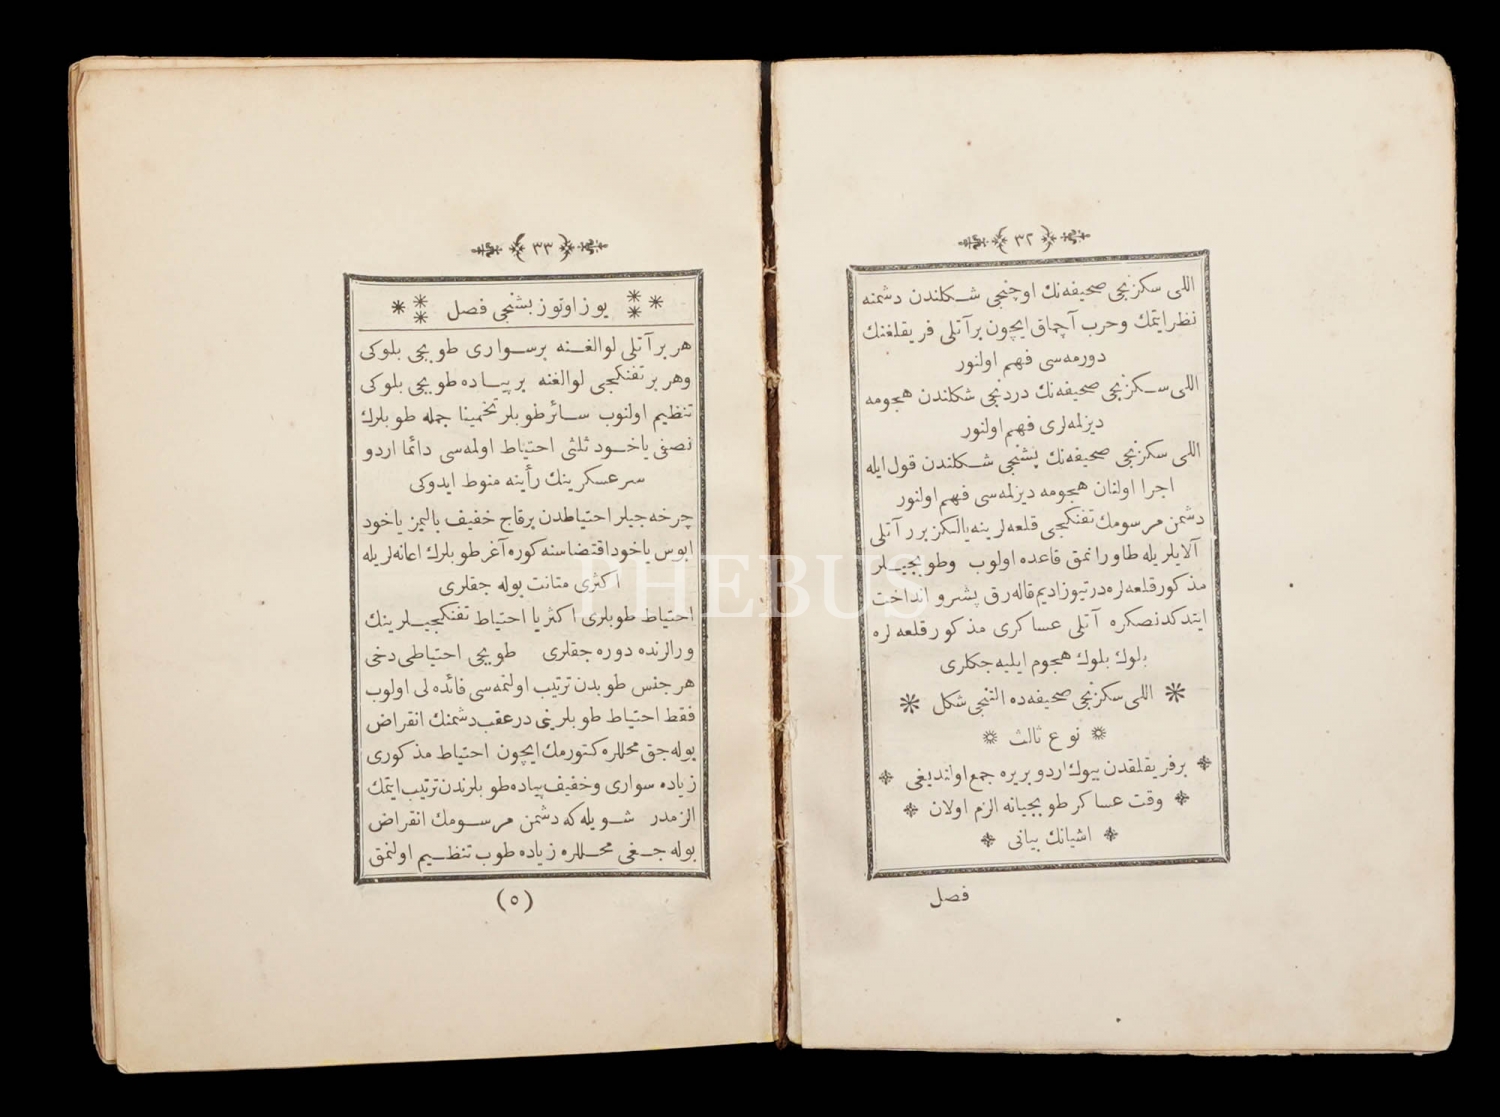 ٣٢
اللی سکزنجی صحیفه‌نك اوچنجی شکلندن دشمنه
نظر ایتمك وحرب آچماق ایچون برآتلی فریقلغنك
دورمه‌سی فهم اولنور
اللی سکزنجی صحیفه‌نك دردنجی شکلندن هجومه
دیزلمه‌لری فهم اولنور
اللی سکزنجی صحیفه‌نك بشنجی شکلندن قول ایله
اجرا اولنان هجومه دیزلمه‌سی فهم اولنور
دشمن مرسومك تفنکچی قلعه‌لرینه یالکز برر آتلی
آلایلریله طاورانمق قاعده اولوب وطوبجیلر
مذکور قلعه‌لره درتیوز ادیم قاله‌رق پشرو انداخت
ایتدکدنصکره آتلی عساکری مذکور قلعه‌لره
بلوك بلوك هجوم ایلیه‌جکلری
اللی سکزنجی صحیفه‌ده التنجی شکل
نوع ثالث
برفریقلقدن بیوك اردو بریره جمع اولندیغی
وقت عساکر طوبجیانه الزم اولان
اشیانك بیانی
فصل
٣٣
یوز اوتوز بشنجی فصل
هر برآتلی لوالغنه برسواری طوبجی بلوکی
وهر برتفنکجی لوالغنه برپیاده طوبجی بلوکی
تنظیم اولنوب سائر طوبلر تخمینا جمله طوبلرك
نصفی یاخود ثلثی احتیاط اولمه‌سی دائما اردو
سرعسکرینك رأینه منوط ایدوکی
چرخه‌جیلر احتیاطدن برقاج خفیف بالیمز یاخود
ابوس یاخود اقتضاسنه کوره آغر طوبلرك اعانه‌لریله
اکثری متانت بوله‌جقلری
احتیاط طوبلری اکثریا احتیاط تفنکجیلرینك
ورالرنده دوره‌جقلری طوبجی احتیاطی دخی
هر جنس طوبدن ترتیب اولنمه‌سی فائده‌لی اولوب
فقط احتیاط طوبلرینی درعقب دشمنك انقراض
بوله‌جق محللره کتورمك ایچون احتیاط مذکوری
زیاده سواری وخفیف پیاده طوبلرندن ترتیب ایتمك
الزمدر شویله‌که دشمن مرسومك انقراض
بوله‌جغی محللره زیاده طوب تنظیم اولنمق
(٥)
PHEBUS